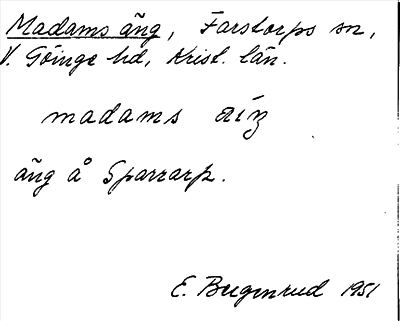 Madams äng, Farstorps sn,
V. Göinge hd, Krist. län.
madams
äng å Sparrarp.
E. Bergenrud 1951